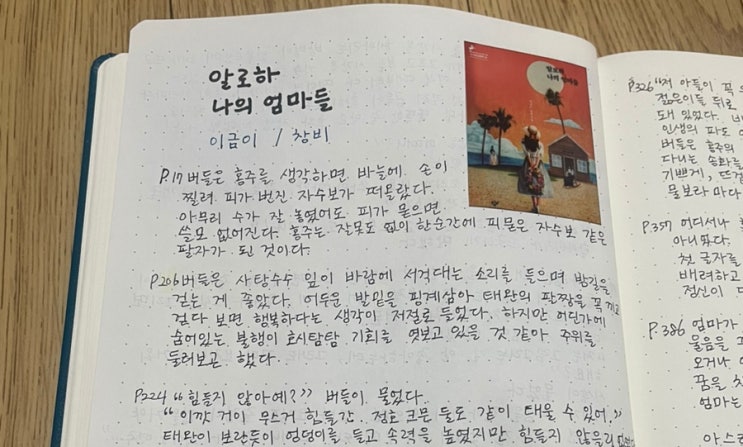 알로하
나의 엄마들
이금이 / 창비
알로하
나의 엄마들
P.17 버들은 홍주를 생각하면 바늘에 손이
찔려 피가 번진 자수보가 떠올랐다.
아무리 수가 잘 놓였어도 피가 묻으면
쓸모 없어진다. 홍주는 잘못도 없이 한순간에 피묻은 자수보 같은
팔자가 된 것이다.
P.206 버들은 사탕수수 잎이 바람에 서걱대는 소리를 들으며 밤길을
걷는 게 좋았다. 어두운 발밑을 핑계삼아 태완의 팔짱을 꼭 끼고
걷다 보면 행복하다는 생각이 저절로 들었다. 하지만 어딘가에
숨어있는 불행이 호시탐탐 기회를 엿보고 있을 것 같아 주위를
둘러보곤 했다.
P.224 "힘들지 않아예?" 버들이 물었다.
"이깟 거이 무스거 힘들간. 정호 크문 둘도 같이 태울 수 있어."
태완이 보란듯이 엉덩이를 들고 속력을 높였지만 힘들지 않을리
P.326 "저 아들이 꼭
젊은이들 뒤로
돼 있었다.
인생의 파도
버들은 홍주의
다니는 송화를
기쁘게,
물보라마다
P.357 어디서나
아니하다.
첫 글자를
배려하고
정신이
P.386 엄마가
울음을
오거나
꿈을
엄마는